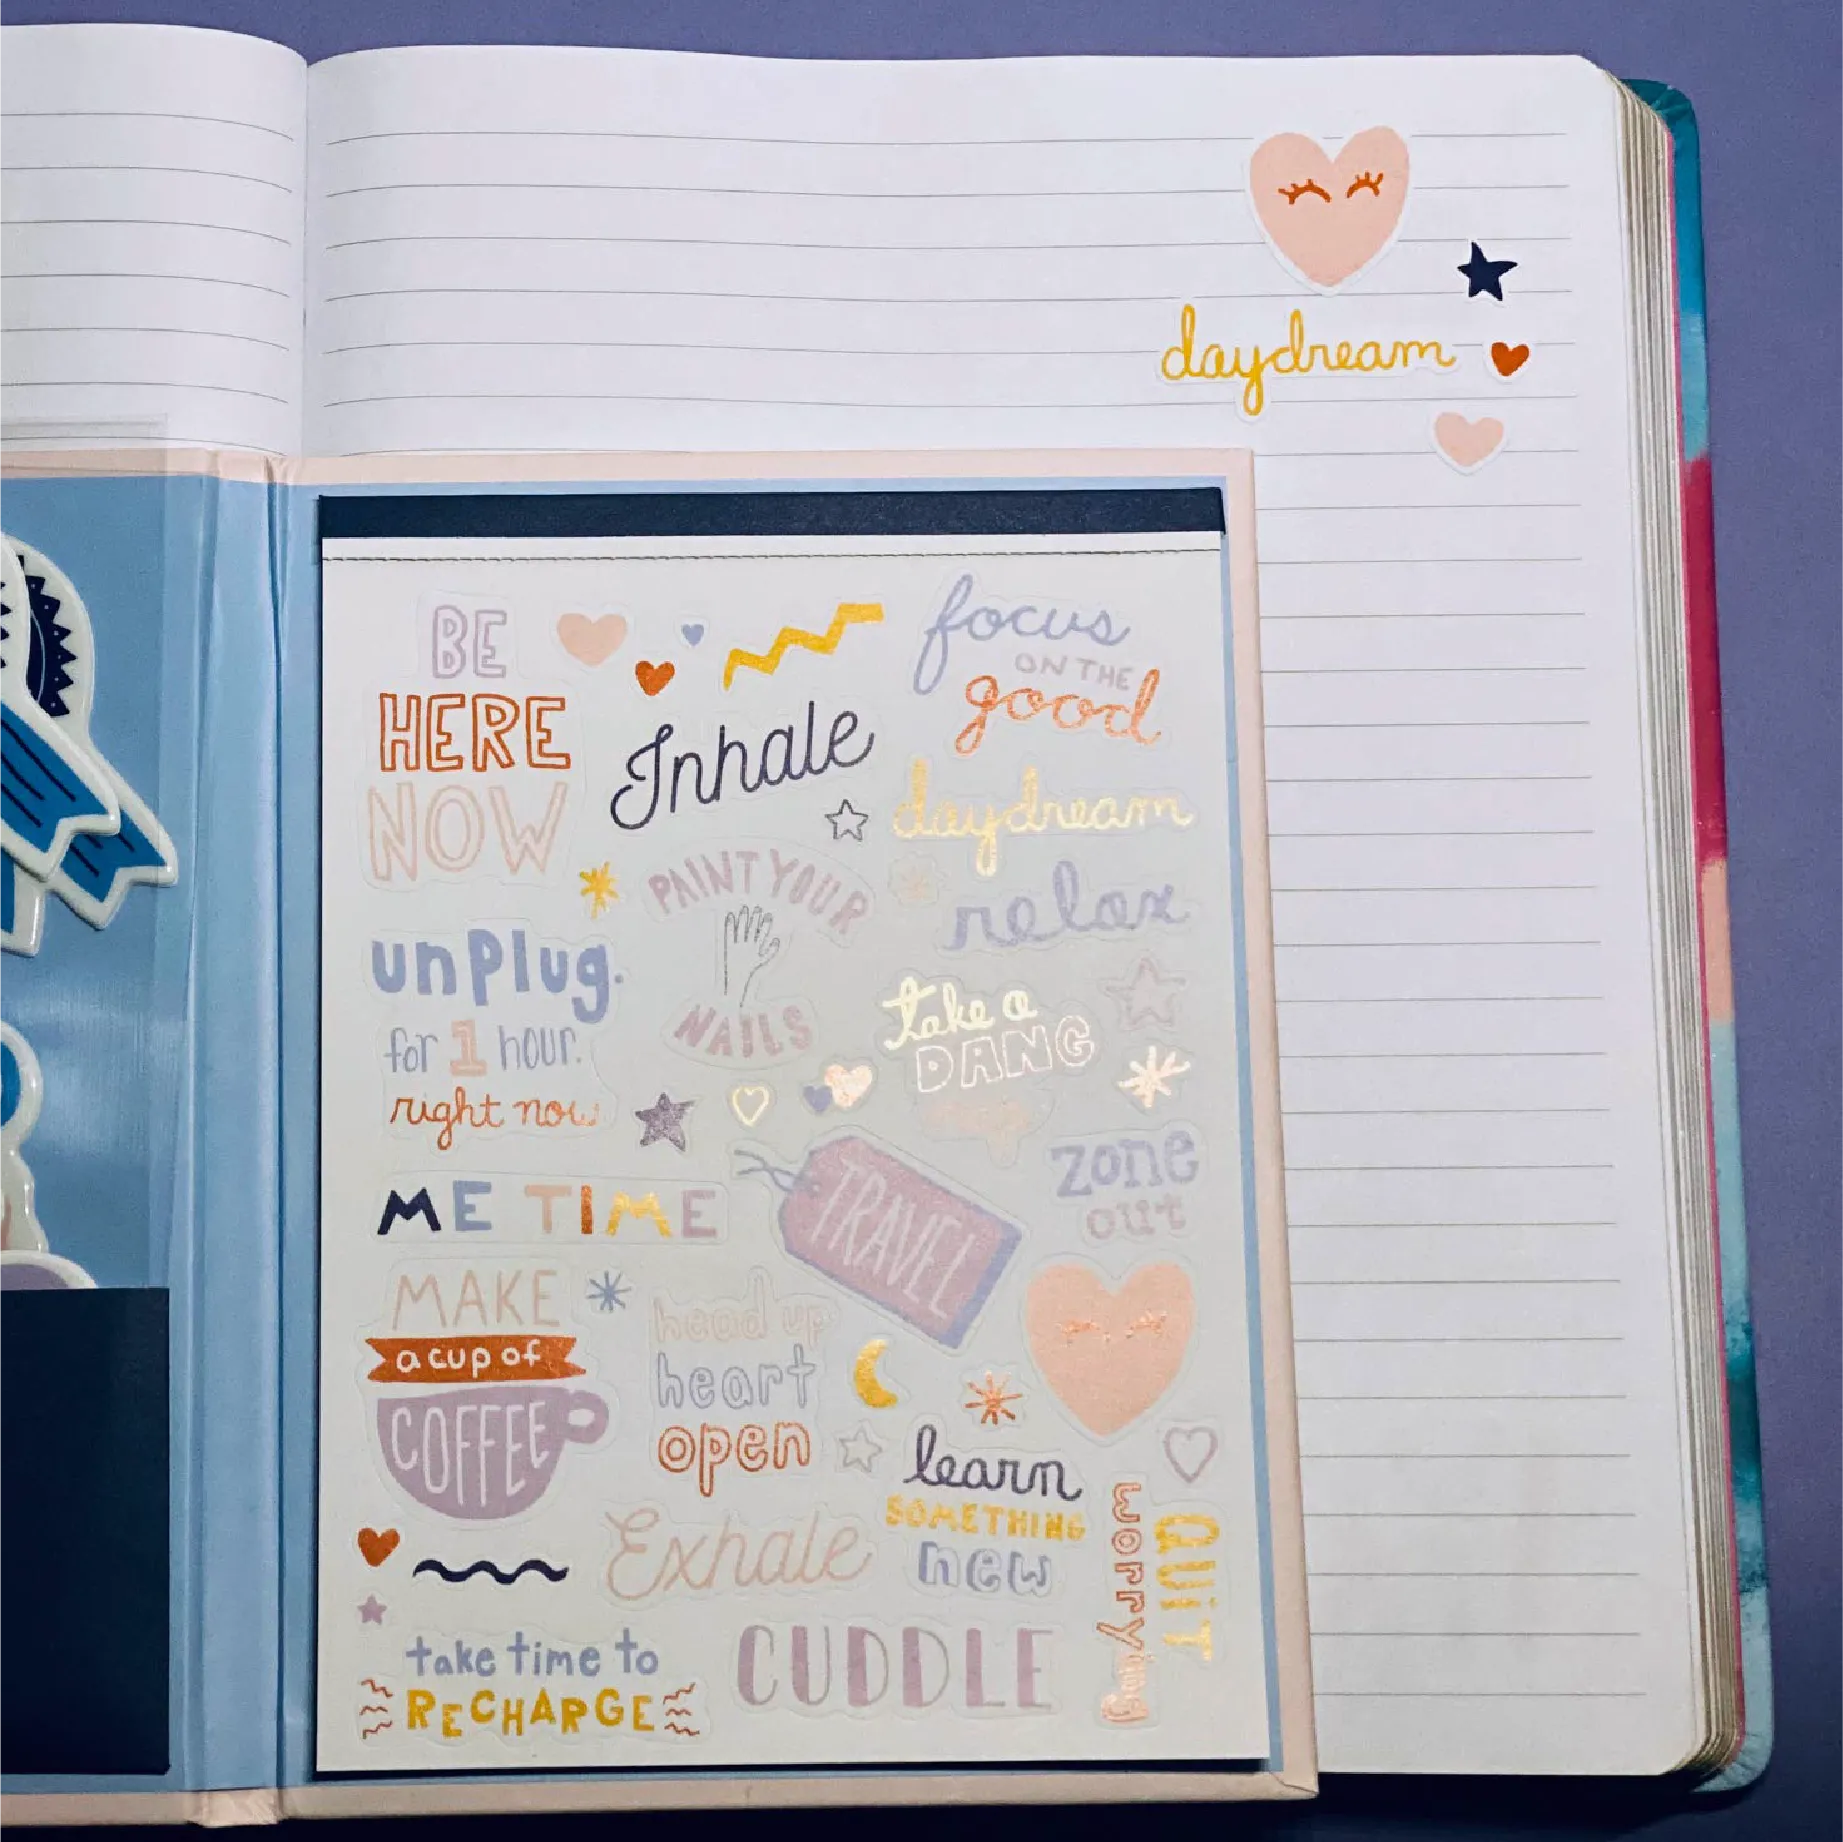 daydream
BE
HERE
NOW
Inhale
focus
ON THE
good
daydream
PAINT YOUR
NAILS
relax
unplug.
for 1 hour.
right now
take a
DANG
ME TIME
TRAVEL
zone
out
MAKE
a cup of
COFFEE
head up
heart
open
learn
SOMETHING
new
QUIT
worrying
Exhale
take time to
RECHARGE
CUDDLE